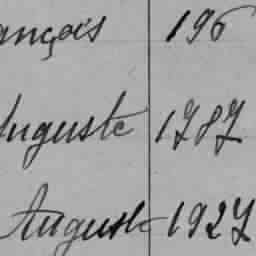 ançois 196
Auguste 1787
Auguste 1927